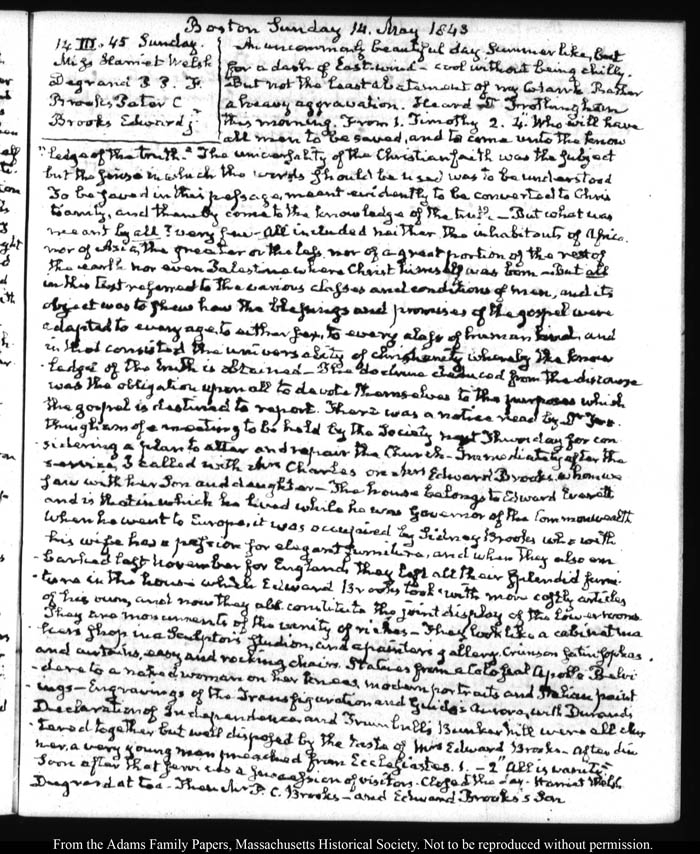 Boston Sunday 14. May 1843
14 III. 45 Sunday.
Miss Harriet Welsh
Degrand P. P. F.
Brooks Pater C
Brooks Edward jr
An uncommonly beautiful day Summer like, but
for a dash of East-wind - cool without being chilly.
But not the least abatement of my Catarrh Rather
a heavy aggravation. Heard Dr Frothingham
this morning. From 1. Timothy 2. 4. "Who will have
all men to be saved, and to come unto the know
"ledge of the truth." The universality of the Christian faith was the subject
but the sense in which the words should be used was to be understood
To be saved in this passage, meant evidently to be converted to Chris
tianity, and thereby come to the knowledge of the truth - But what was
meant by all? very few - all included neither the inhabitants of Africa.
nor of Asia, the greater or the less, nor of a great portion of the rest of
the earth nor even Palestine where Christ himself was born - But all
in this text referred to the various classes and conditions of men, and its
object was to shew how the blessings and promises of the gospel were
adapted to every age, to either sex, to every class of human kind, and
in that consisted the universality of christianity whereby the know
-ledge of the truth is obtained - The doctrine deduced from the discourse
was the obligation upon all to devote themselves to the purposes which
the gospel is destined to There was a notice read by Dr Fro-
thingham of a meeting to be held by the Society next Thursday for con
-sidering a plan to alter and repair the Church - Immediately after the
service, I called with Mrs Charles on Mrs Edward Brooks, whom we
saw with her Son and daughter - The house belongs to Edward Everett
and is that in which he lived while he was Governor of the Commonwealth
When he went to Europe, it was occupied by Sidney Brooks who with
his wife has a passion for elegant furniture, and when they also em
-barked last November for England, they left all their splendid furni-
-ture in the house which Edward Brooks took with more costly articles
of his own, and now they all constitute the joint display of the lower rooms.
They are monuments of the vanity of riches - They look like a cabinet ma
kers shop, in a Sculptor's Studion, and a painter's gallery. Crimson satin sophas.
and curtains, easy and rocking chairs. Statues from a Colossal Apollo Belvi
-dere to a naked woman on her knees, modern portraits and Italian paint
-ings - Engravings of the Transfiguration and Guido's Aurora, with Durand's
Declaration of Independence, and Trumbull's Bunker hill were all clus
-tered together but well disposed by the taste of Mrs Edward Brooks - After din
ner, a very young man preached from Ecclesiastes. 1. - 2 "All is vanity"
Soon after that a succession of visitors. Closed the day. Harriet Welsh
Degrand at tea - Then Mr P. C. Brooks - and Edward Brooks's Son
From the Adams Family Papers, Massachusetts Historical Society. Not to be reproduced without permission.